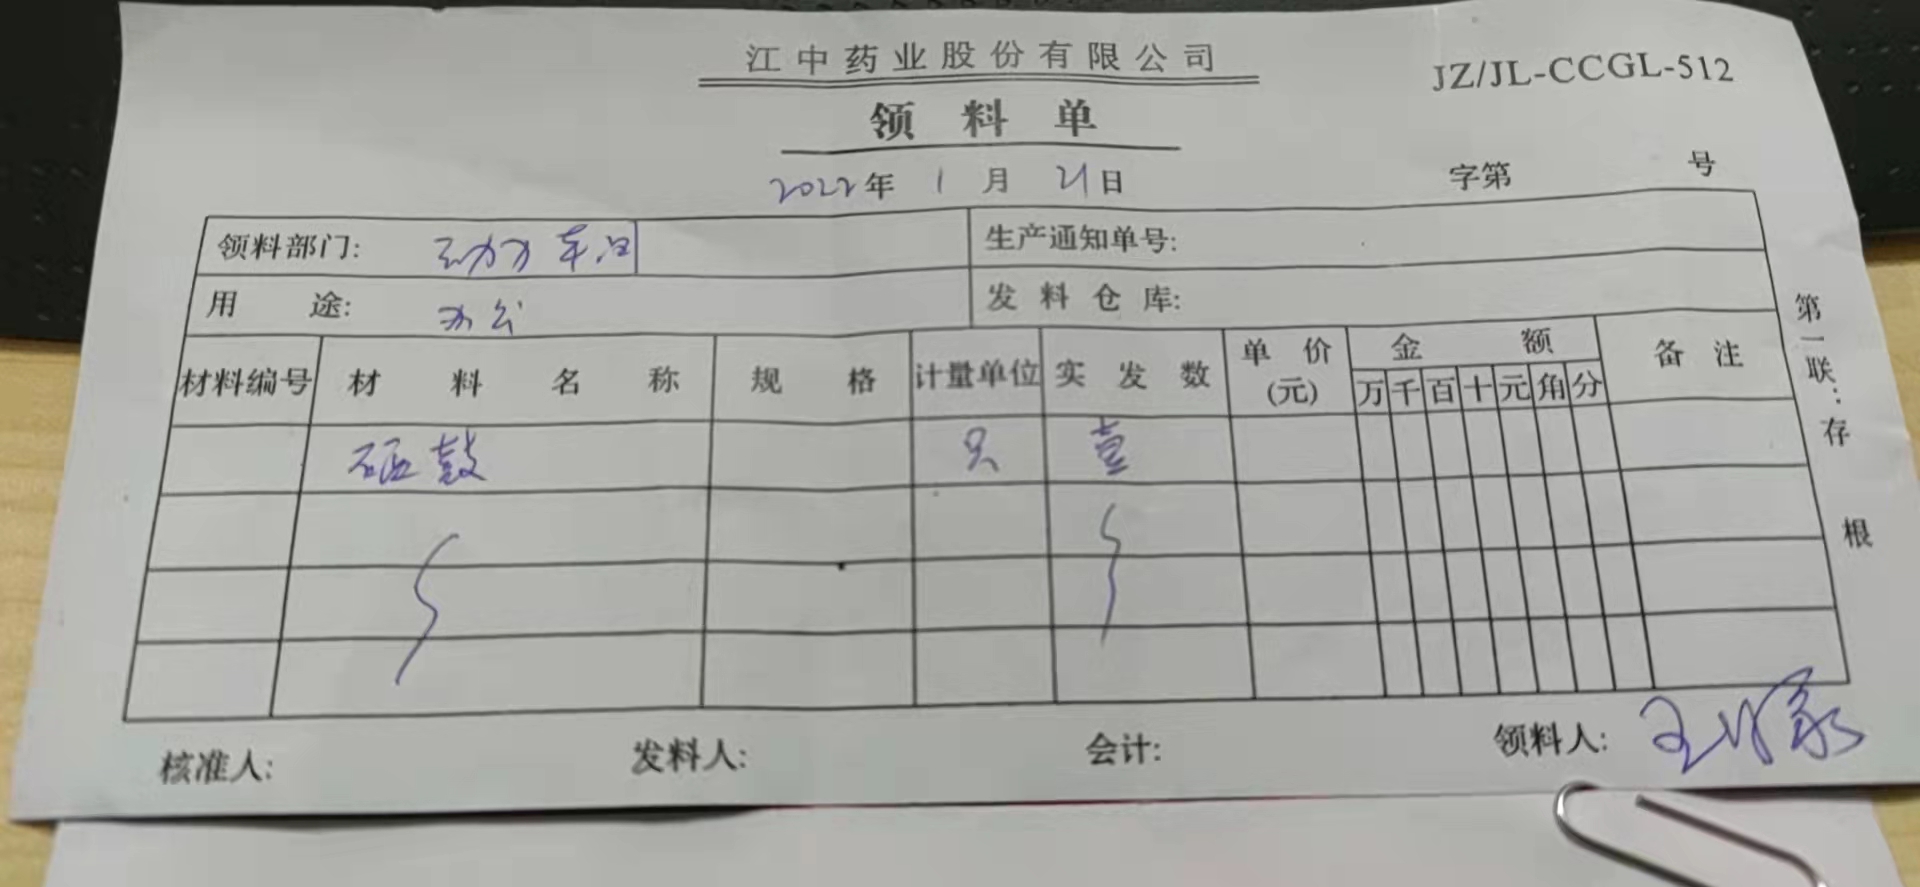 江中药业股份有限公司
JZ/JL-CCGL-512
领料单
2022年 1月 21日
字第 号
领料部门: 动力车间 生产通知单号:
用途: 办公 发料仓库:
材料编号 材料名称 规格 计量单位 实发数 单价(元) 金额 万千百十元角分 备注
硒鼓 只 壹
第一联:存根
核准人: 发料人: 会计: 领料人: